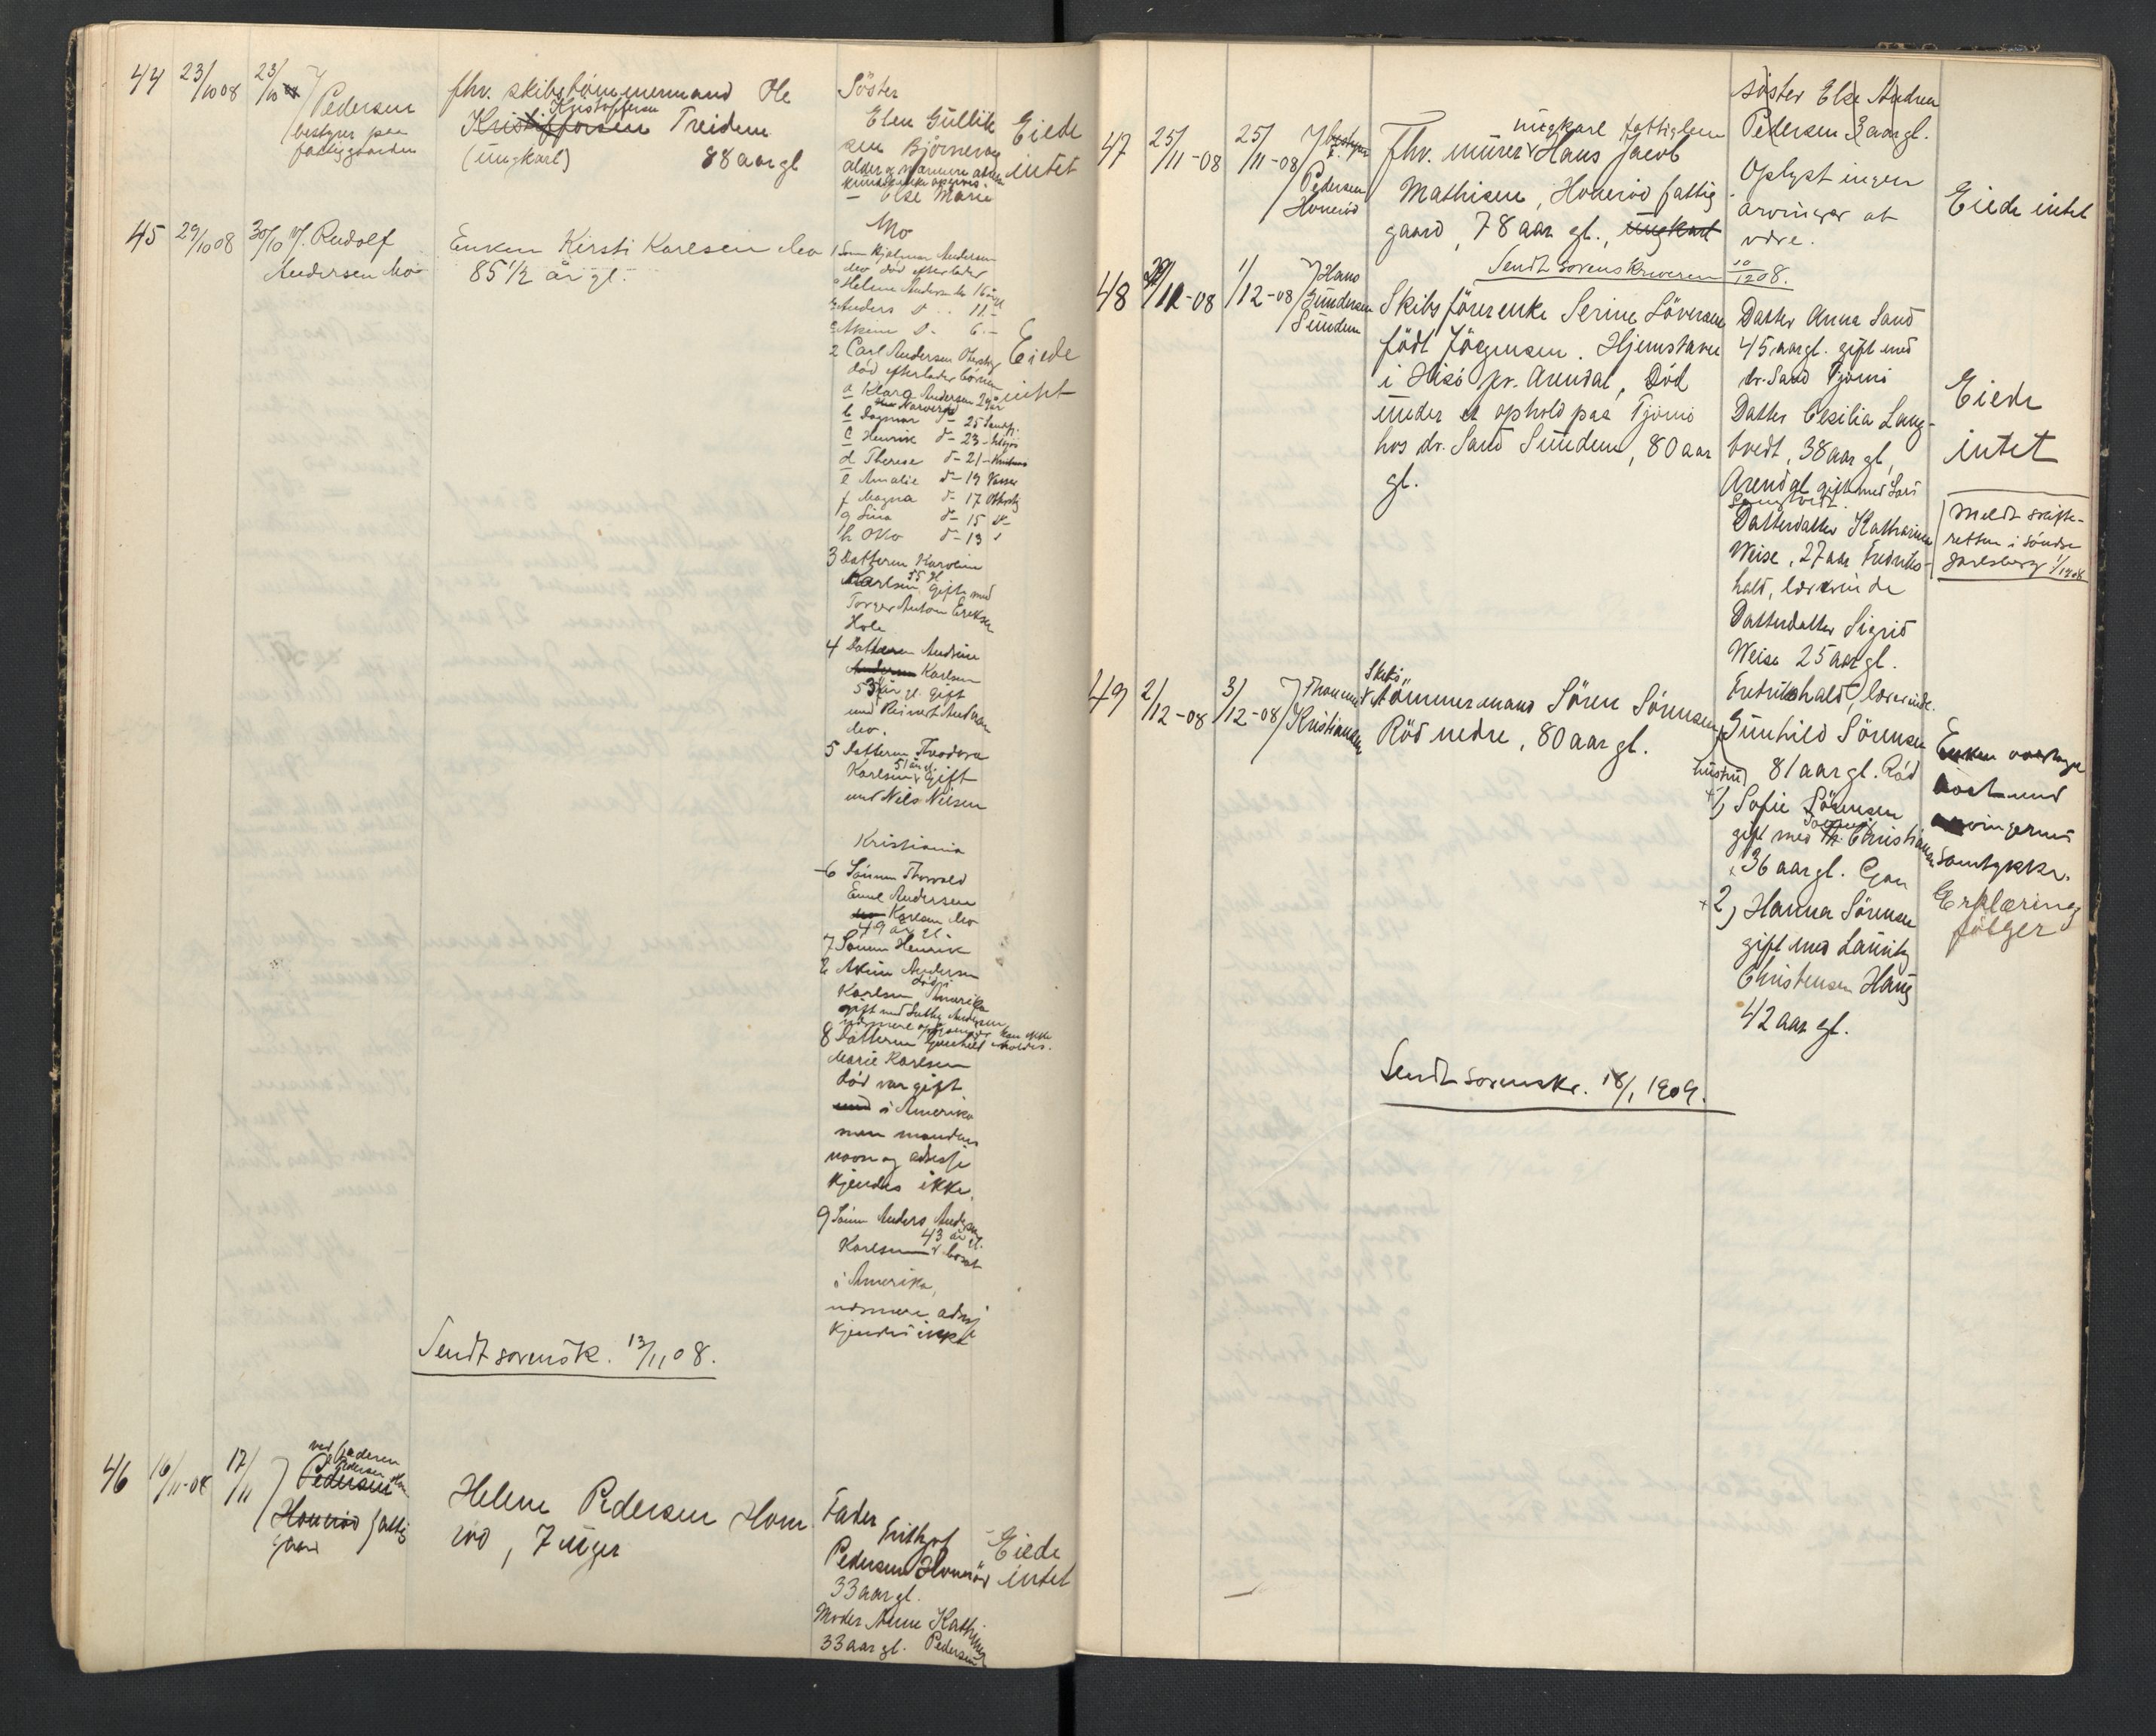 44 23/10 08 23/10 08 Pedersen
bestyrer paa
fattiggaarden
fhv. skibstömmermand Ole
Kristoffersen
Kristoffersen Treidene
(ungkarl) 88 aar gl
Söster
Elen Gullik
sen Bjørnevaag
alder og nærmere adresse
kunde ikke opgives.
— Else Marie
Mo
Eiede
intet
45 29/10 08 30/10 v/ Rudolf
Andersen Mo
Enken Kirsti Karlsen Mo
85 1/2 år gl.
1 Søn Hjalmar Andersen
Mo død efterlader
a Helene Anders. Mo 16 år gl
b Anders d .. 11.-
c Askim d - 6.-
2 Carl Andersen
död efterlader börn
a Klara Andersen 29 år
b Dagmar d- 25 Sandfj.
c Henrik d- 23 -
d Therese d- 21 -
e Amalie d- 19
f Magna d- 17
g Lina d- 15 d-
h Otto d- 13
Eiede
intet
3 Datteren Karoline
Karlsen 55 år gift med
Torger Anton Eriksen
Hole
4 Datteren Andrine
Andersen Karlsen
53 år gl. gift
med Reinert Andersen
Mo.
5 Datteren Theodora
51 år gl.
Karlsen gift
med Nils Nilsen
Kristiania
6 Sönnen Thorvald
Emil Andersen
Mo Karlsen Mo
49 år gl.
7 Sönnen Henrik
Askim Andersen
Karlsen död i Amerika
gift med Andersen
nærmere oplysninger kan ikke
erholdes.
8 Datteren Gunhild
Marie Karlsen
död var gift
med i Amerika
men mandens
navn og adresse
kjendes ikke.
9 Sönn Anders Andersen
43 år gl.
Karlsen bosat
i Amerika,
nærmere adresse
kjendes ikke
Sendt sorensk. 13/11 08.
46 16/11-08 17/11 ved faderen
Pedersen
Pedersen
Honerød fattig
gaard
Helene Pedersen Hone
rød, 7 uger
Fader
Frithjof
Pedersen Honerød
33 aar gl.
Moder Anne Kathrine
33 aar gl. Pedersen
Eiede
intet
søster Else Andrea
Pedersen 3 aar gl.
47 25/11-08 25/11-08 v/ bestyrer
Pedersen
Honerød
ungkarl fattiglem
Fhv. murer Hans Jacob
Mathisen, Honerød fattig
gaard, 78 aar gl., ungkarl
Oplyst ingen
arvinger at
være.
Eiede intet
Sendt sorenskriveren 10/12 08.
48 29/11-08 1/12-08 v/ Hans
Gundersen
Sundene
Skibsförerenke Serine Löversen
födt Jörgensen. Hjemstavn
i Hisö pr. Arendal, Död
under et ophold paa Tjömö
hos dr. Sand Sundene, 80 aar
gl.
Datter Anna Sand
45 aar gl. gift med
dr. Sand Tjömö
Datter Cesilia Lang-
tvedt, 38 aar gl,
Arendal gift med Lars
Langtvedt.
Datterdatter Katharina
Weise, 27 aar Fredriks-
hald, lærerinde
Datterdatter Sigrid
Weise 25 aar gl.
Fredrikshald, lærerinde.
Eiede
intet
Meldt skifte-
retten i söndre
Jarlsberg 1/12 08
49 2/12-08 3/12-08 v/ Thommas
Kristiansen
Skibs
tömmermand Sören Sörensen
Röd nedre, 80 aar gl.
Gunhild Sörensen
hustru, 81 aar gl. Röd
1) Sofie Sörensen
gift med Thommas Christiansen
36 aar gl.
2) Hanna Sörensen
gift med Lauritz
Christensen Haug
42 aar gl.
Enken overtage
boet med
arvingernes
samtykke.
Erklæring
fölger
Sendt sorenskr. 18/1 1909.